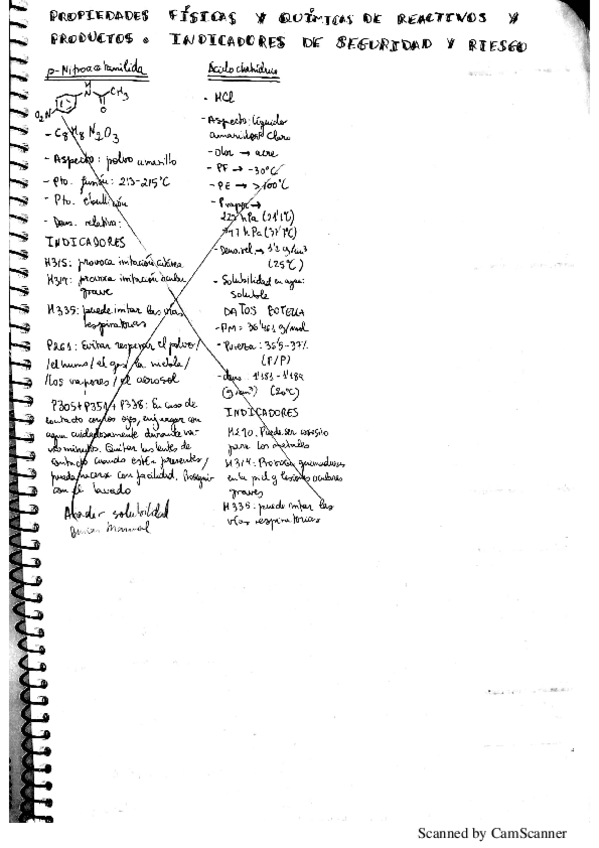 PROPIEDADES FÍSICAS Y QUÍMICAS DE REACTIVOS Y
PRODUCTOS. INDICADORES DE SEGURIDAD Y RIESGO
p-Nitroacetanilida
O2N
H
N
CH3
O
- C8H8N2O3
- Aspecto: polvo amarillo
- Pto. fusión: 213-215°C
- Pto. ebullición
- Dens. relativa:
INDICADORES
H315: provoca irritación cutánea
H319: provoca irritación ocular
grave
H335: puede irritar las vías
respiratorias
P261: Evitar respirar el polvo/
/el humo/el gas/la niebla/
/los vapores/el aerosol
P305+P351+P338: En caso de
contacto con los ojos, enjuagar con
agua cuidadosamente durante va-
rios minutos. Quitar las lentes de
contacto cuando estén presentes/
pueda hacerse con facilidad. Proseguir
con el lavado
Añadir solubilidad
Manual
Ácido clorhídrico
- HCl
- Aspecto: líquido
amarillo claro
- Olor → acre
- PF → -30°C
- PE → >100°C
- Pvapor →
227 hPa (21'1°C)
(37'7°C)
- Dens. rel. → 1'2 g/cm3
(25°C)
- Solubilidad en agua:
soluble
DATOS BOTELLA
- PM = 36'461 g/mol
- Pureza: 36'5-37%
(P/P)
- dens. 1'181-1'189
(g/cm3) (20°C)
INDICADORES
H290: Puede ser corrosivo
para los metales
H314: Provoca quemaduras
en la piel y lesiones oculares
graves
H335: puede irritar las
vías respiratorias
Scanned by CamScanner